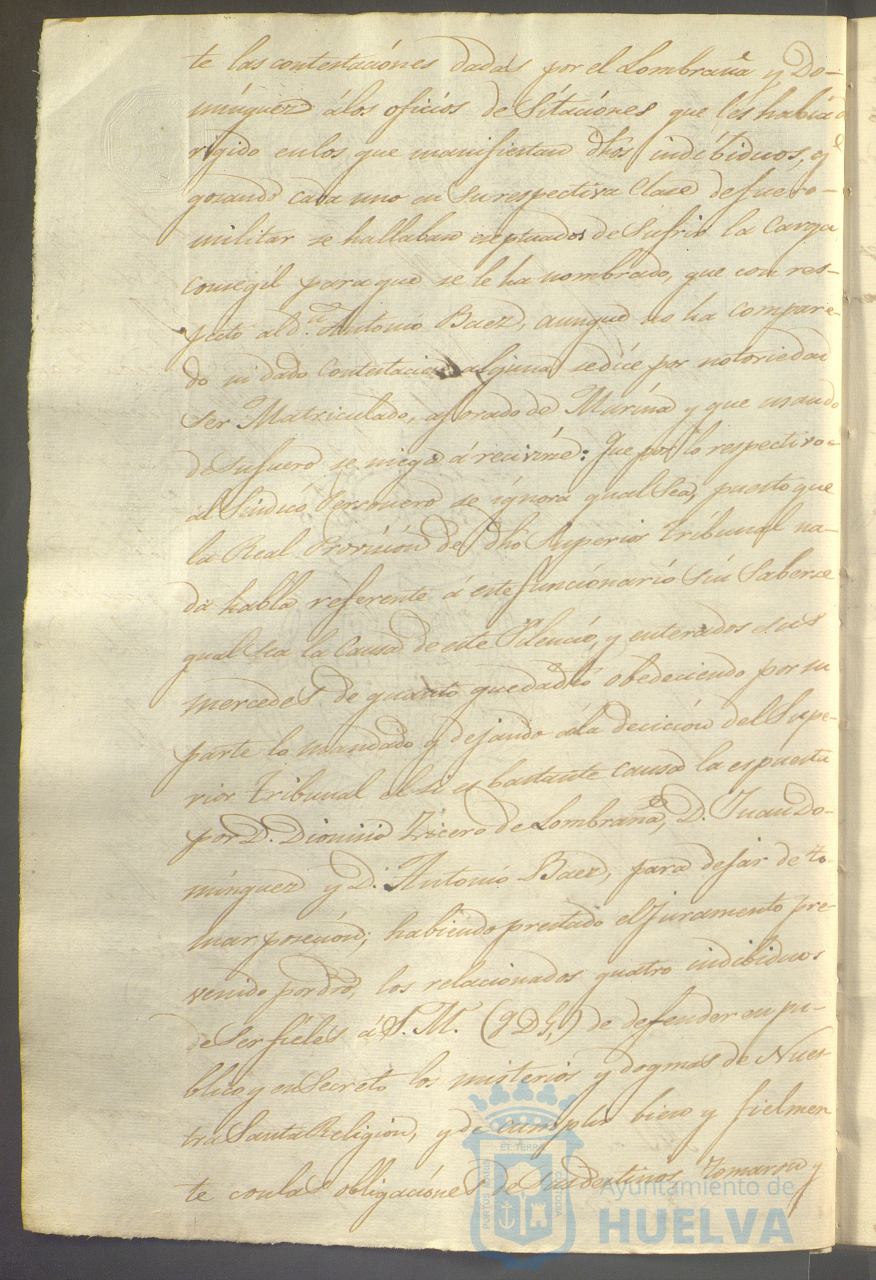 te las contestaciónes dadas por el Lombraña y Do-
minguez álos oficios de Sitaciónes que les habia di
rigido enlos que manifiestan dhos indibiduos, qe
gozando cada uno en su respectiva Clase defuero-
militar se hallaban eceptuados de Sufrir la Carga
consegil paraque se le ha nombrado, que con res-
pecto al dn. Antonio Baez, aunque no ha compare-
do ni dado Contestacion alguna sedice por notoriedad
ser Matriculado, aforado de Marina y que usando
desufuero se niega á recivirse: Que por lo respectivo-
al Sindico Personero se ignora qual Sea, puesto que
la Real Provición de dho Superior tribunal na-
da habla referente á este funcionario Sin Saberse
qual sea la Causa de este Silencio, y enterados sus
mercedes de quanto queda dho obedeciendo por su
parte lo mandado y dejando ála decición del Supe-
rior tribunal el si es bastante causa la espuesta
por D. Dionisio de Lombraña, D. Juan Do-
minguez y D. Antonio Baez, para dejar de to-
mar poseción; habiendo prestado el Juramento pre-
venido pordro, los relacionados quatro indibiduos
de Ser fieles á S. M. (q D G) de defender en pu-
blico y en Secreto los misterios y dogmas de Nues
tra Santa Religion, y de cumplir bien y fielmen
te conlas obligaciónes de Sus destinos, tomaron y
PORTUS MARIS
ET TERRÆ
CUSTODIA
Ayuntamiento de
HUELVA